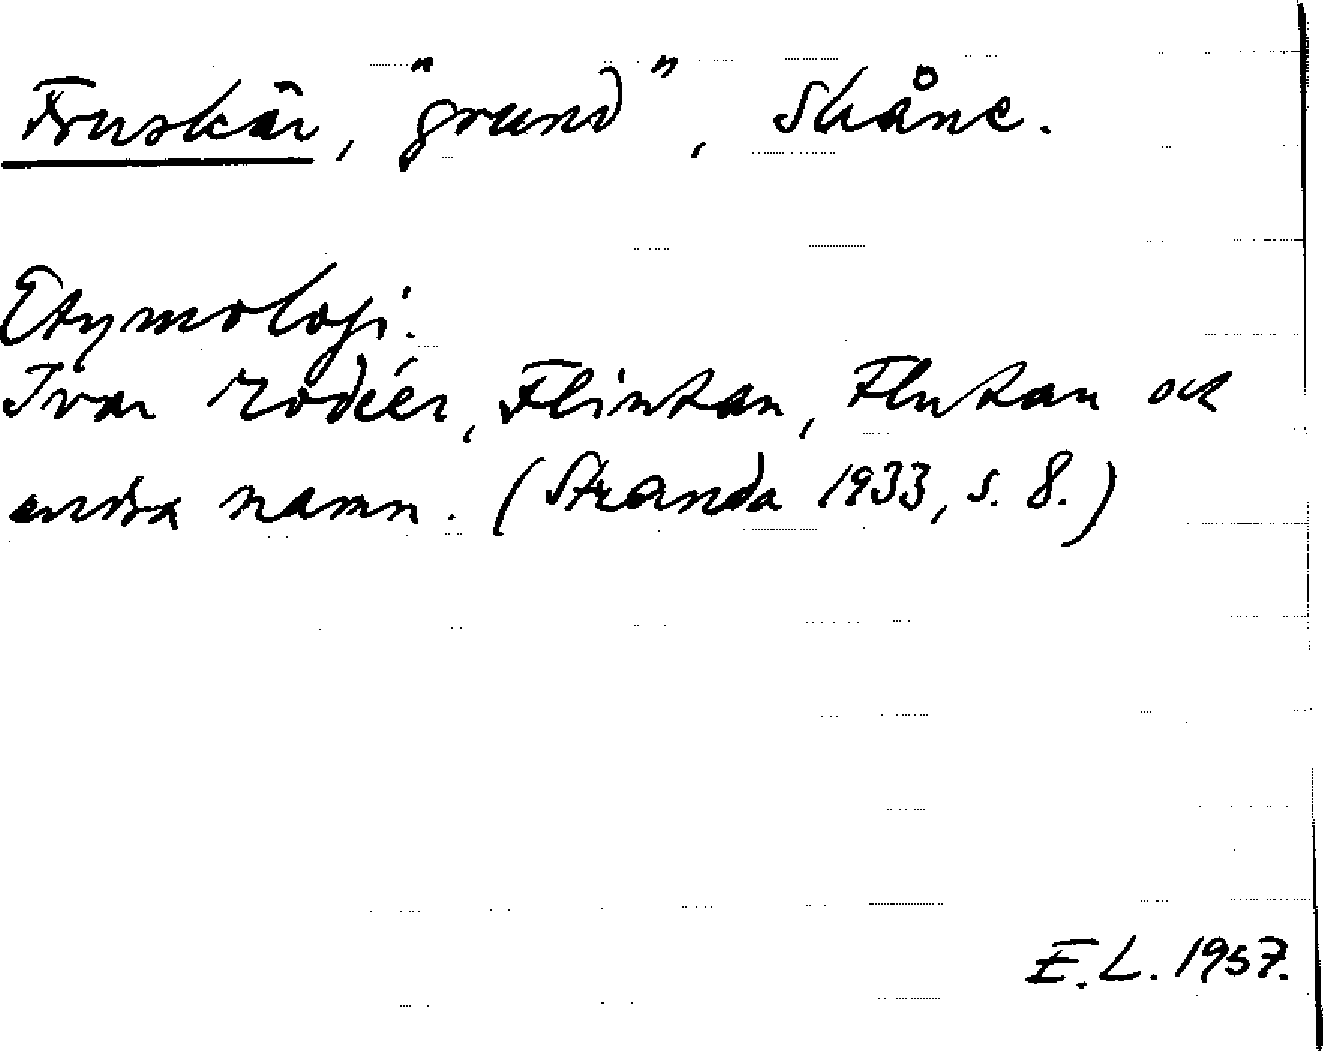 Fruskär, "grund", Skåne.
Etymologi.
Ivar Modéer, Flintan, Flutan och
andra namn. (Stranda 1933, s. 8.)
E.L. 1957.